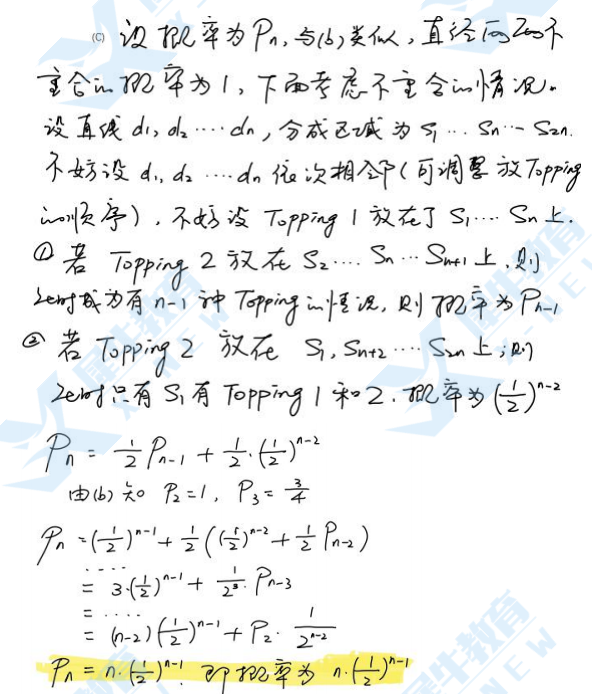 (C) 设概率为Pn,与(b)类似,直径向Zeb不
重合的概率为1,下面考虑不重合的情况。
设直线d₁,d₂‥‥dn,分成区域为S₁‥‥Sn‥‥S2n.
不妨设d₁,d₂‥‥dn依次相邻(可调整放Topping
的顺序),不妨设Topping 1放在了S₁‥‥Sn上.
① 若Topping 2放在S₂‥‥Sn‥Sn+1上,则
Zeb时成为有n-1种Topping的情况,则概率为Pn-1
② 若Topping 2 放在 S₁,Sn+2‥‥S2n上,则
Zeb时只有S₁有Topping 1和2,概率为(1/2)^(n-2)
Pn = 1/2 Pn-1 + 1/2·(1/2)^(n-2)
由(b)知 P₂=1, P₃=3/4
Pn = (1/2)^(n-1) + 1/2((1/2)^(n-2) + 1/2 Pn-2)
‥‥
= 3·(1/2)^(n-1) + 1/2³·Pn-3
= ‥‥
= (n-2)(1/2)^(n-1) + P₂·1/2^(n-2)
Pn = n·(1/2)^(n-1). 即概率为 n·(1/2)^(n-1)
犀牛教育
X-NEW